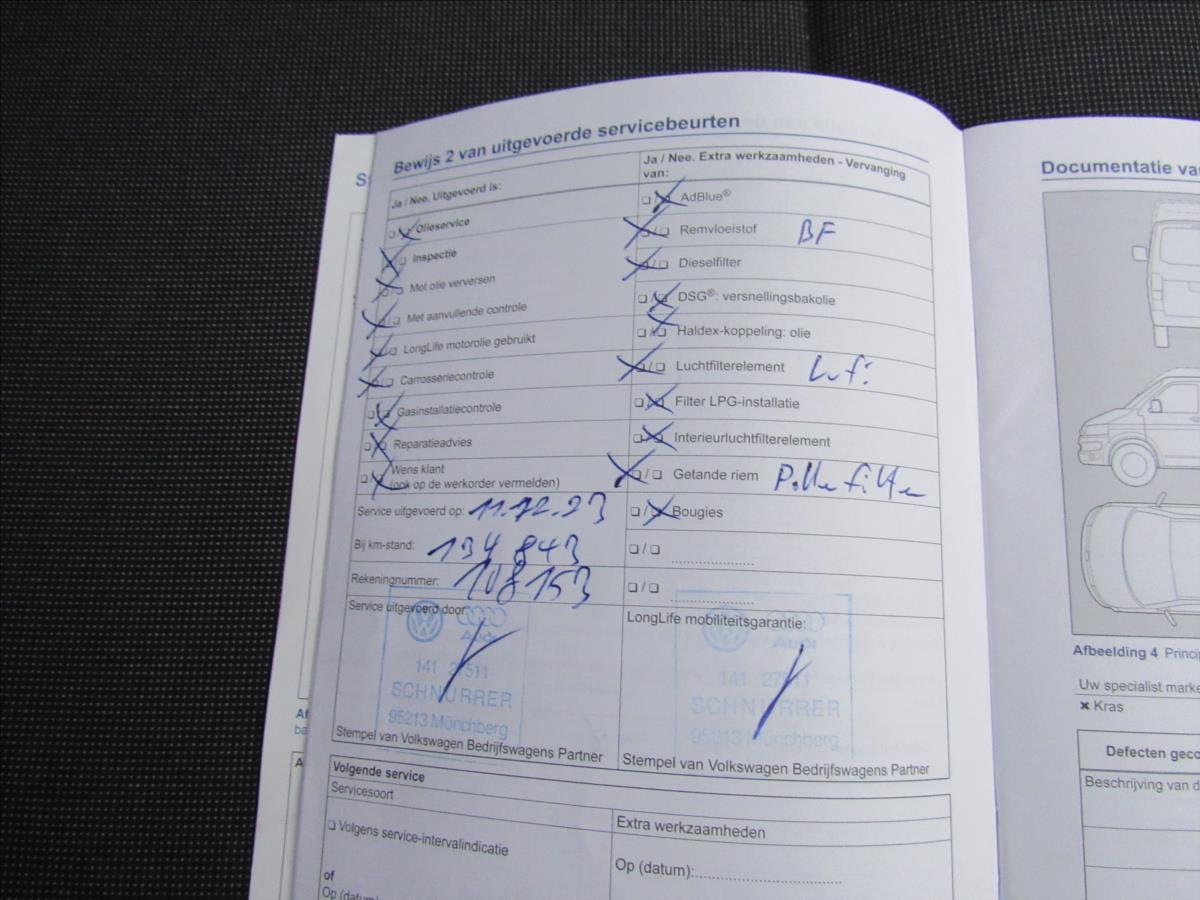 Bewijs 2 van uitgevoerde servicebeurten
Ja / Nee. Uitgevoerd is:
Olieservice
Inspectie
Met olie verversen
Met aanvullende controle
LongLife motorolie gebruikt
Carrosseriecontrole
Gasinstallatiecontrole
Reparatieadvies
Wens klant
(ook op de werkorder vermelden)
Service uitgevoerd op: 11.12.23
Bij km-stand: 134 843
Rekeningnummer: 108153
Service uitgevoerd door:
Audi
141 27511
SCHNURRER
95213 Münchberg
Stempel van Volkswagen Bedrijfswagens Partner
Ja / Nee. Extra werkzaamheden - Vervanging
van:
AdBlue®
Remvloeistof BF
Dieselfilter
DSG®: versnellingsbakolie
Haldex-koppeling: olie
Luchtfilterelement
Filter LPG-installatie
Interieurluchtfilterelement
Getande riem
Bougies
LongLife mobiliteitsgarantie:
Audi
141 27511
SCHNURRER
95213 Münchberg
Stempel van Volkswagen Bedrijfswagens Partner
Volgende service
Servicesoort
Volgens service-intervalindicatie
of
Op (datum)
Extra werkzaamheden
Op (datum):
Documentatie va
Afbeelding 4 Princi
Uw specialist marke
✖ Kras
Defecten geco
Beschrijving van d